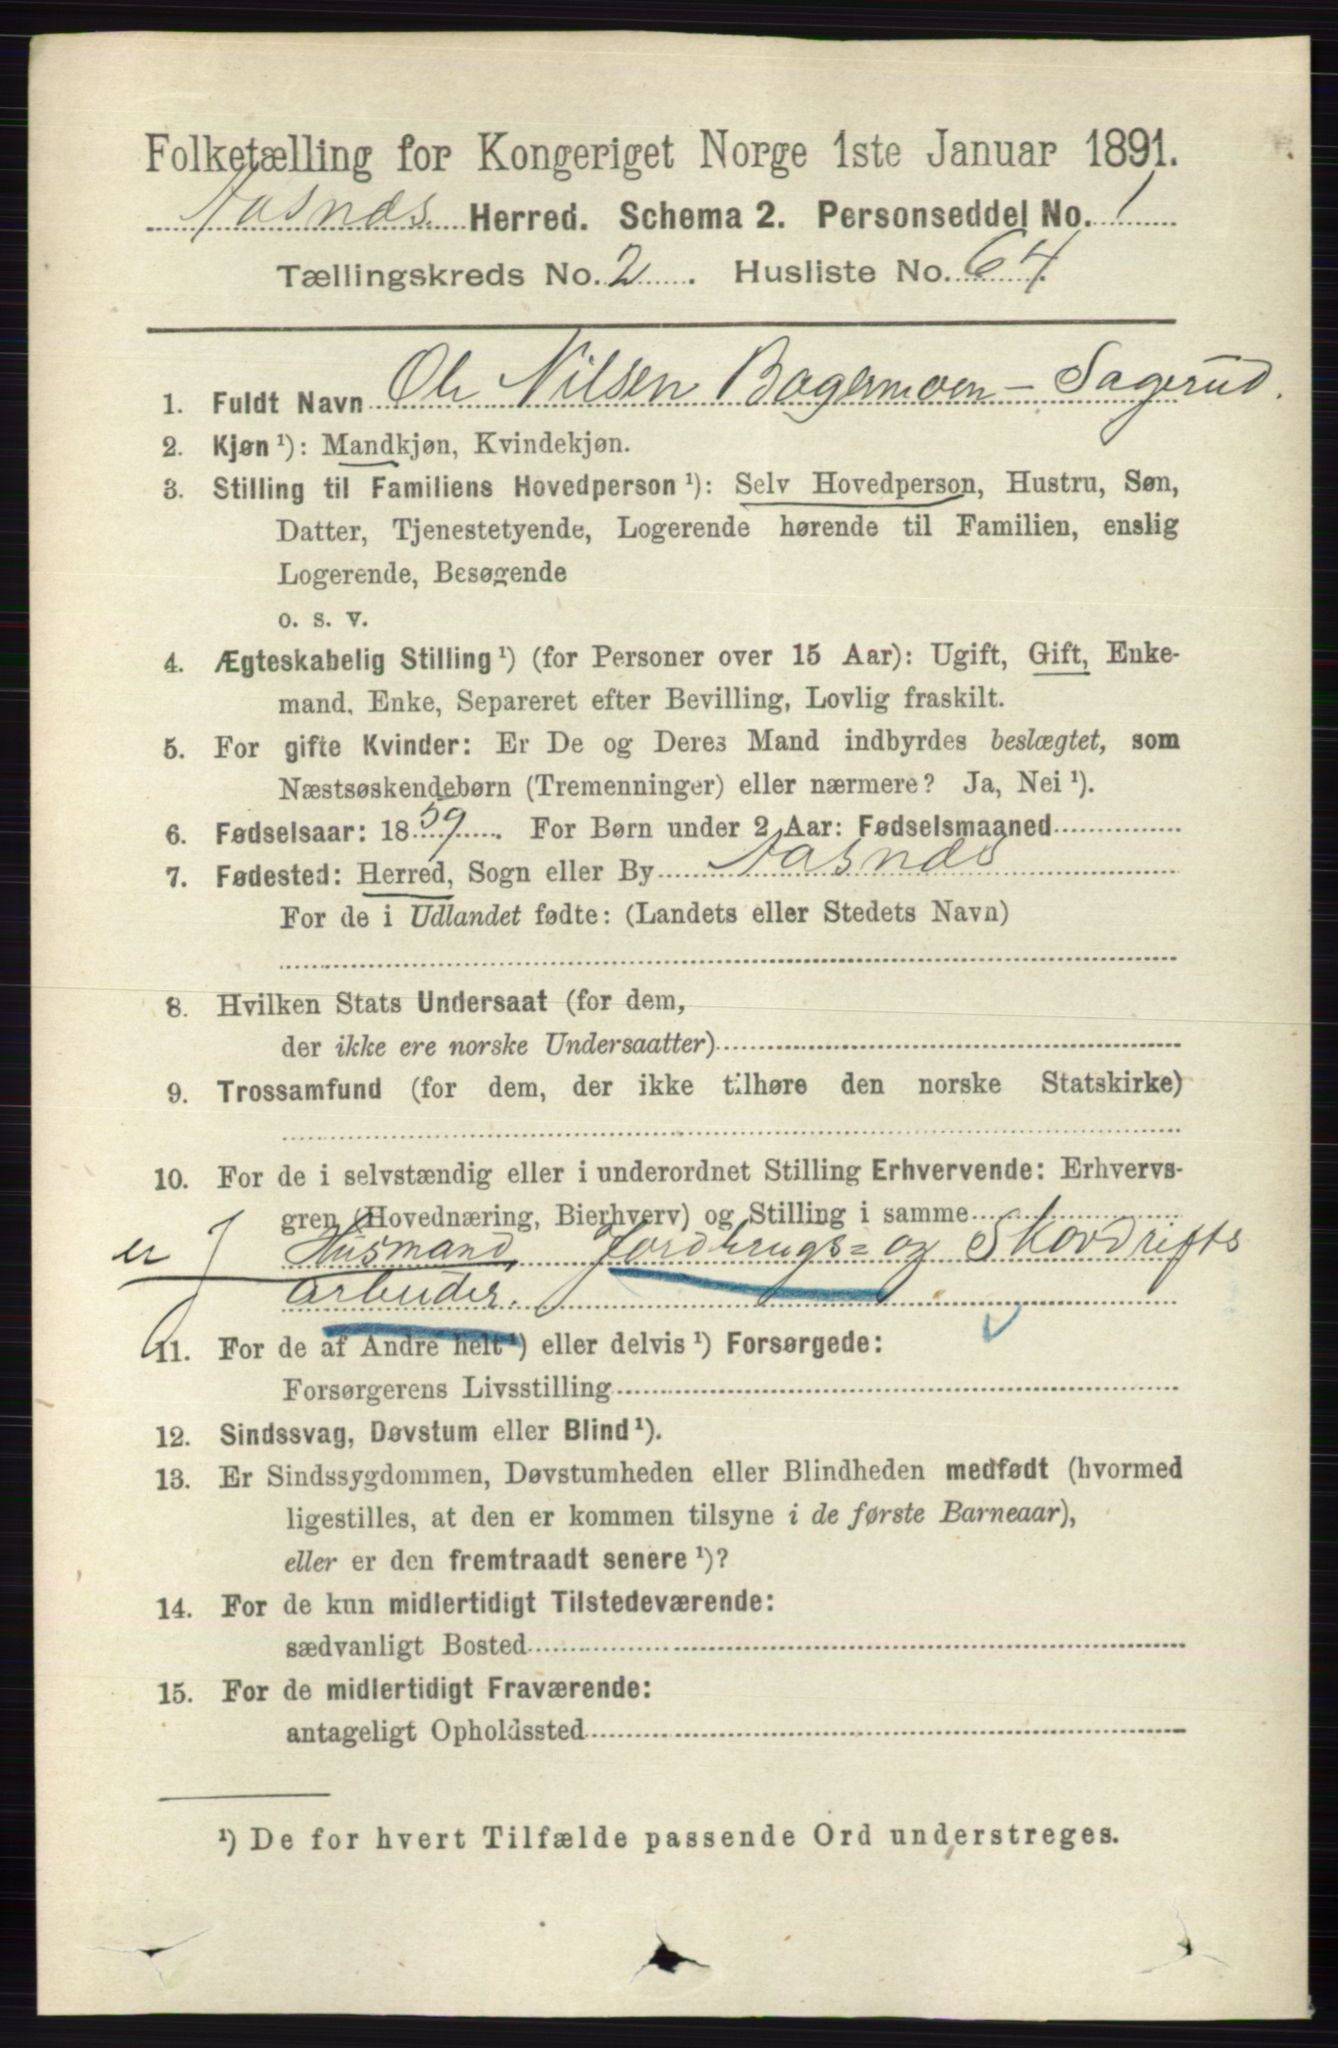 Folketælling for Kongeriget Norge 1ste Januar 1891.
Aasnæs. Herred. Schema 2. Personseddel No. 1
Tællingskreds No. 2. Husliste No. 64.
1. Fuldt Navn Ole Nilsen Bagermoen - Sagerud.
2. Kjøn ¹): Mandkjøn, Kvindekjøn.
3. Stilling til Familiens Hovedperson ¹): Selv Hovedperson, Hustru, Søn,
Datter, Tjenestetyende, Logerende hørende til Familien, enslig
Logerende, Besøgende
o. s. v.
4. Ægteskabelig Stilling ¹) (for Personer over 15 Aar): Ugift, Gift, Enke-
mand, Enke, Separeret efter Bevilling, Lovlig fraskilt.
5. For gifte Kvinder: Er De og Deres Mand indbyrdes beslægtet, som
Næstsøskendebørn (Tremenninger) eller nærmere? Ja, Nei ¹).
6. Fødselsaar: 1859. For Børn under 2 Aar: Fødselsmaaned
7. Fødested: Herred, Sogn eller By Aasnæs
For de i Udlandet fødte: (Landets eller Stedets Navn)
8. Hvilken Stats Undersaat (for dem,
der ikke ere norske Undersaatter)
9. Trossamfund (for dem, der ikke tilhøre den norske Statskirke)
10. For de i selvstændig eller i underordnet Stilling Erhvervende: Erhvervs-
gren (Hovednæring, Bierhverv) og Stilling i samme
er Husmand, Jordbrugs= og Skovdrifts
arbeider.
11. For de af Andre helt ¹) eller delvis ¹) Forsørgede:
Forsørgerens Livsstilling
12. Sindssvag, Døvstum eller Blind ¹).
13. Er Sindssygdommen, Døvstumheden eller Blindheden medfødt (hvormed
ligestilles, at den er kommen tilsyne i de første Barneaar),
eller er den fremtraadt senere ¹)?
14. For de kun midlertidigt Tilstedeværende:
sædvanligt Bosted
15. For de midlertidigt Fraværende:
antageligt Opholdssted
¹) De for hvert Tilfælde passende Ord understreges.